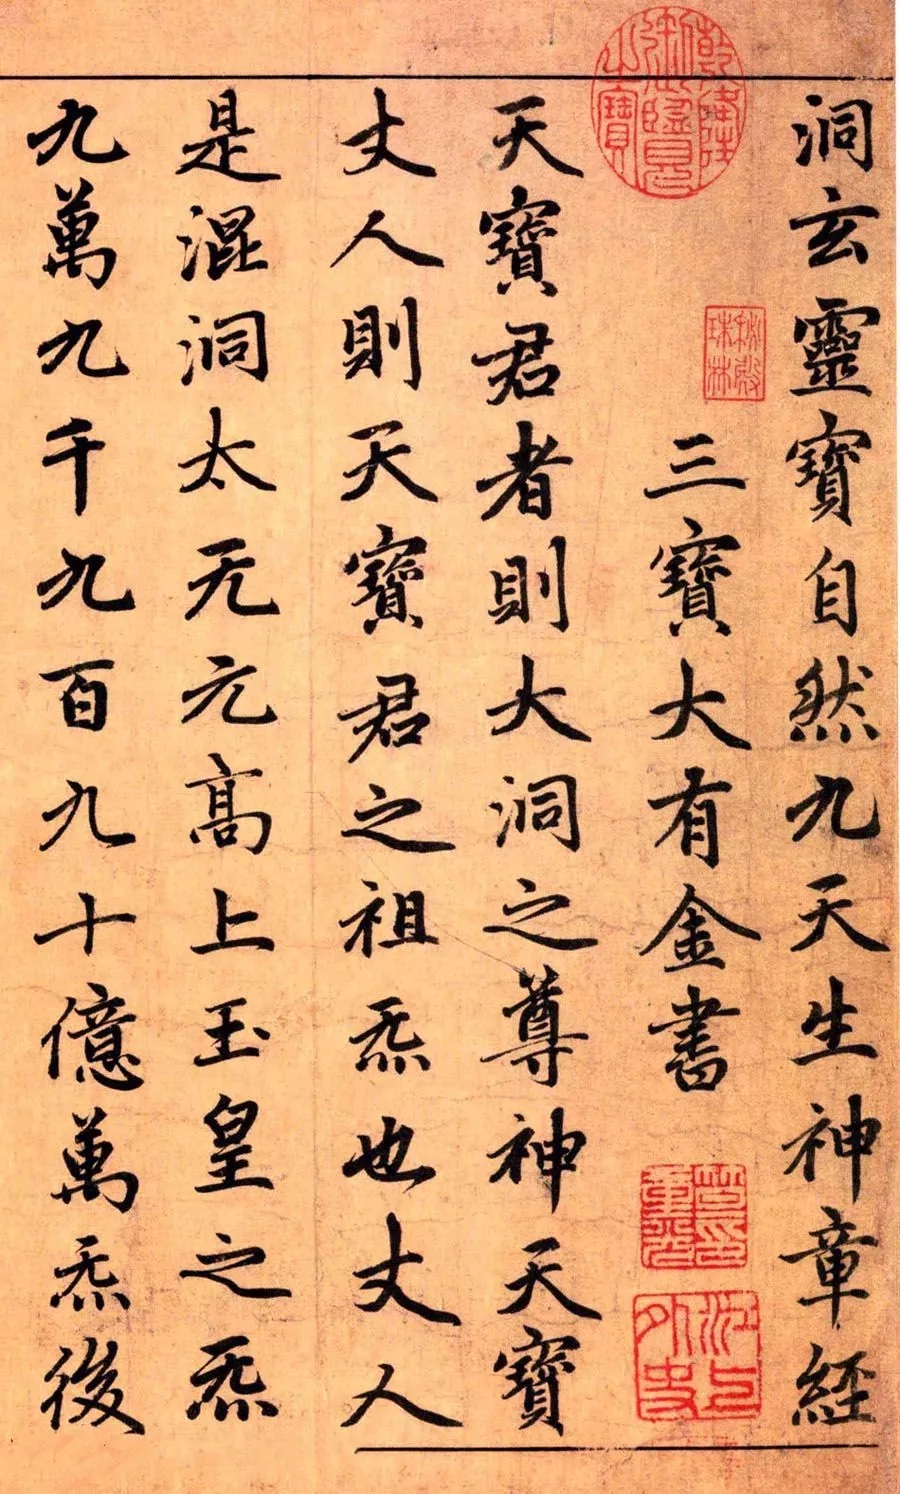 洞玄靈寶自然九天生神章經
乾隆御覽之寶
秘殿珠林
三寶大有金書
笪重光印
江上外史
天寶君者則大洞之尊神天寶
丈人則天寶君之祖炁也丈人
是混洞太无元髙上玉皇之炁
九萬九千九百九十億萬炁後